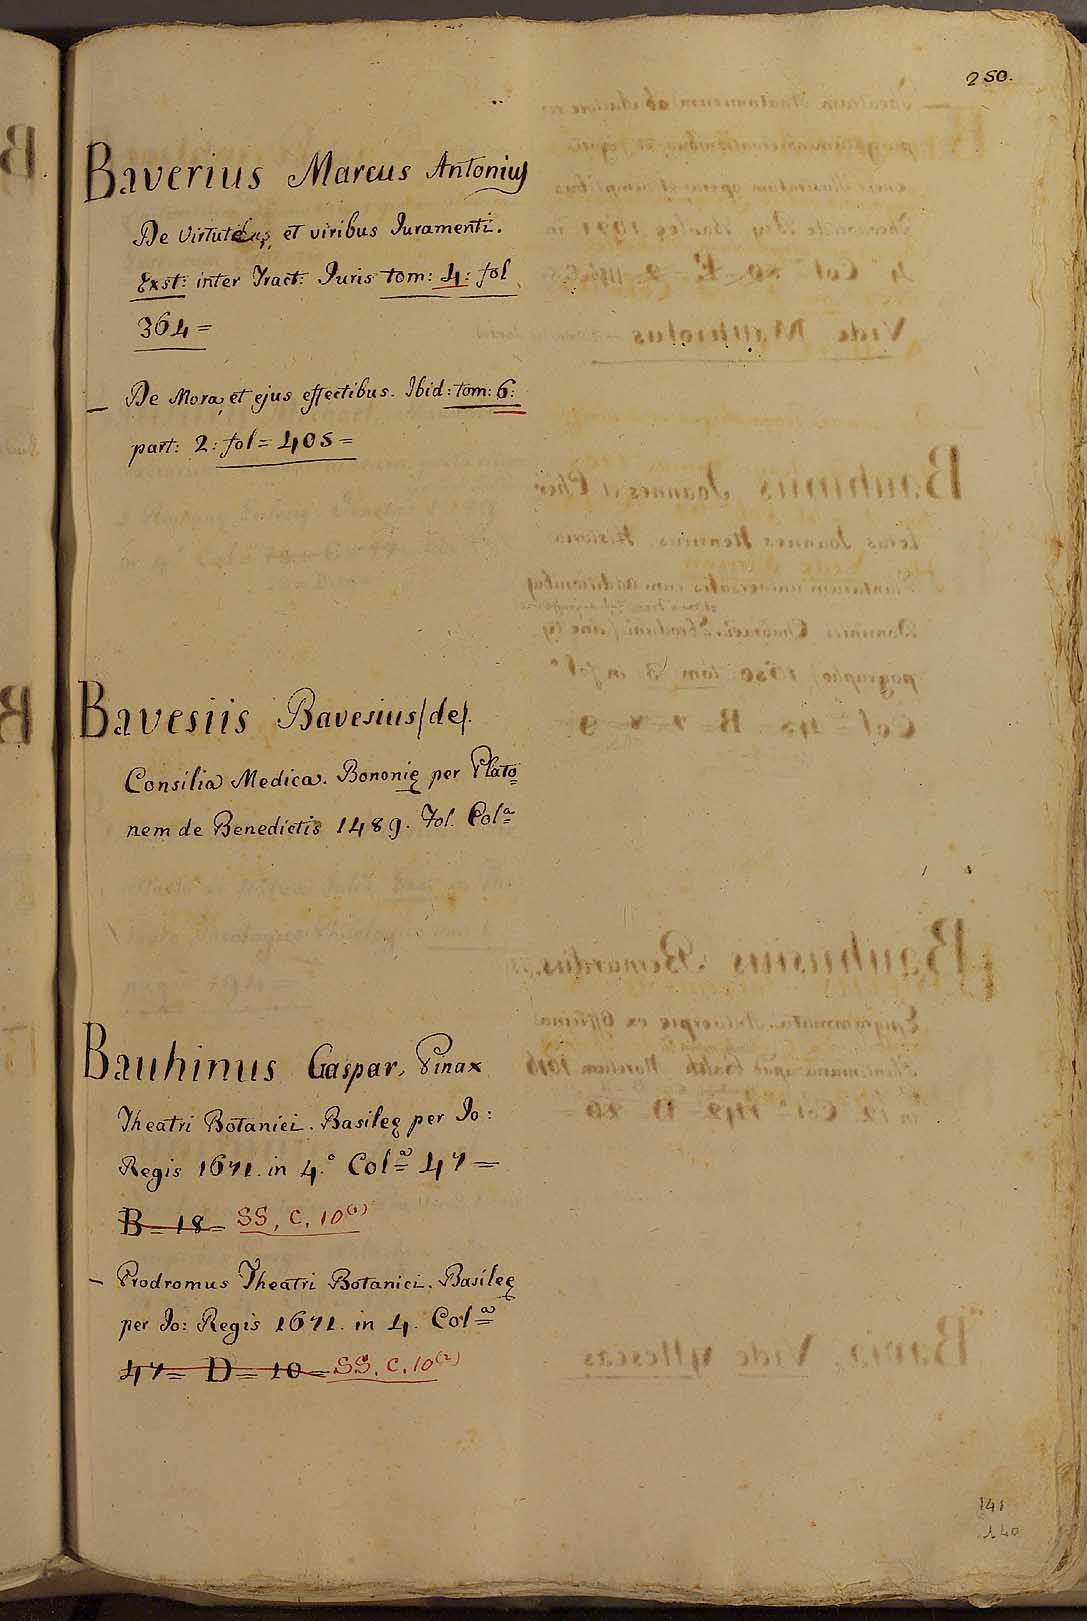 250.
Baverius Marcus Antonius
De Virtutibus, et viribus Juramenti.
Exst: inter Tract: Juris tom: 4: fol
364=
– De Mora, et ejus effectibus. Ibid: tom: 6:
part: 2: fol= 405=
Bavesiis Bavesius/de/.
Consilia Medica. Bononię per Plato=
nem de Benedictis 1489. Fol. Colª=
Bauhinus Gaspar, Pinax
Theatri Botanici. Basileę per Jo:
Regis 1671. in 4.º Colª= 47=
B=18= SS, C, 10(1)
– Prodromus Theatri Botanici. Basileę
per Jo: Regis 1671. in 4. Colª=
47= D= 10= SS. C. 10(2)
141
140